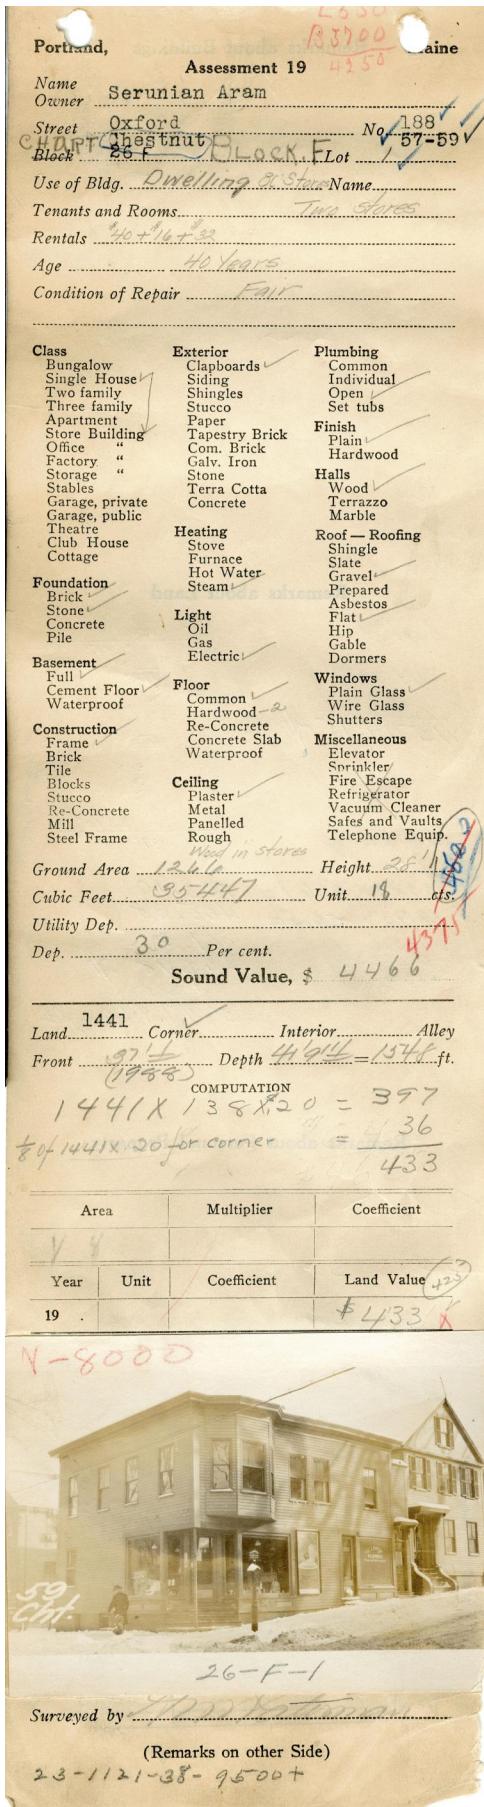 L 550
B 3700
4250
Portland, Maine
Assessment 19
Name
Owner Serunian Aram
Street Oxford No. 188
Chestnut 57-59
CHART
Block 26 F BLOCK. F Lot 1
Use of Bldg. Dwelling & Stores Name
Tenants and Rooms Two stores
Rentals $40 + $16 + $32
Age 40 Years
Condition of Repair Fair
Class
Bungalow
Single House
Two family
Three family
Apartment
Store Building
Office "
Factory "
Storage "
Stables
Garage, private
Garage, public
Theatre
Club House
Cottage
Foundation
Brick
Stone
Concrete
Pile
Basement
Full
Cement Floor
Waterproof
Construction
Frame
Brick
Tile
Blocks
Stucco
Re-Concrete
Mill
Steel Frame
Exterior
Clapboards
Siding
Shingles
Stucco
Paper
Tapestry Brick
Com. Brick
Galv. Iron
Stone
Terra Cotta
Concrete
Heating
Stove
Furnace
Hot Water
Steam
Light
Oil
Gas
Electric
Floor
Common
Hardwood - 2
Re-Concrete
Concrete Slab
Waterproof
Ceiling
Plaster
Metal
Panelled
Rough
Wood in stores
Plumbing
Common
Individual
Open
Set tubs
Finish
Plain
Hardwood
Halls
Wood
Terrazzo
Marble
Roof — Roofing
Shingle
Slate
Gravel
Prepared
Asbestos
Flat
Hip
Gable
Dormers
Windows
Plain Glass
Wire Glass
Shutters
Miscellaneous
Elevator
Sprinkler
Fire Escape
Refrigerator
Vacuum Cleaner
Safes and Vaults
Telephone Equip.
Ground Area 1266 Height 28'
Cubic Feet 35447 Unit 18 cts.
Utility Dep.
4375
Dep. 30 Per cent.
Sound Value, $ 4466
Land 1441 Corner Interior Alley
Front Depth = 1548 ft.
(1988)
COMPUTATION
1441 X 138 X .20 = 397
1/8 of 1441 X 20 for corner = 36
433
Area Multiplier Coefficient
Year Unit Coefficient Land Value 425
19 . $ 433 X
V-8000
59
Cht.
26-F-1
Surveyed by
(Remarks on other Side)
23-1121-38-9500+